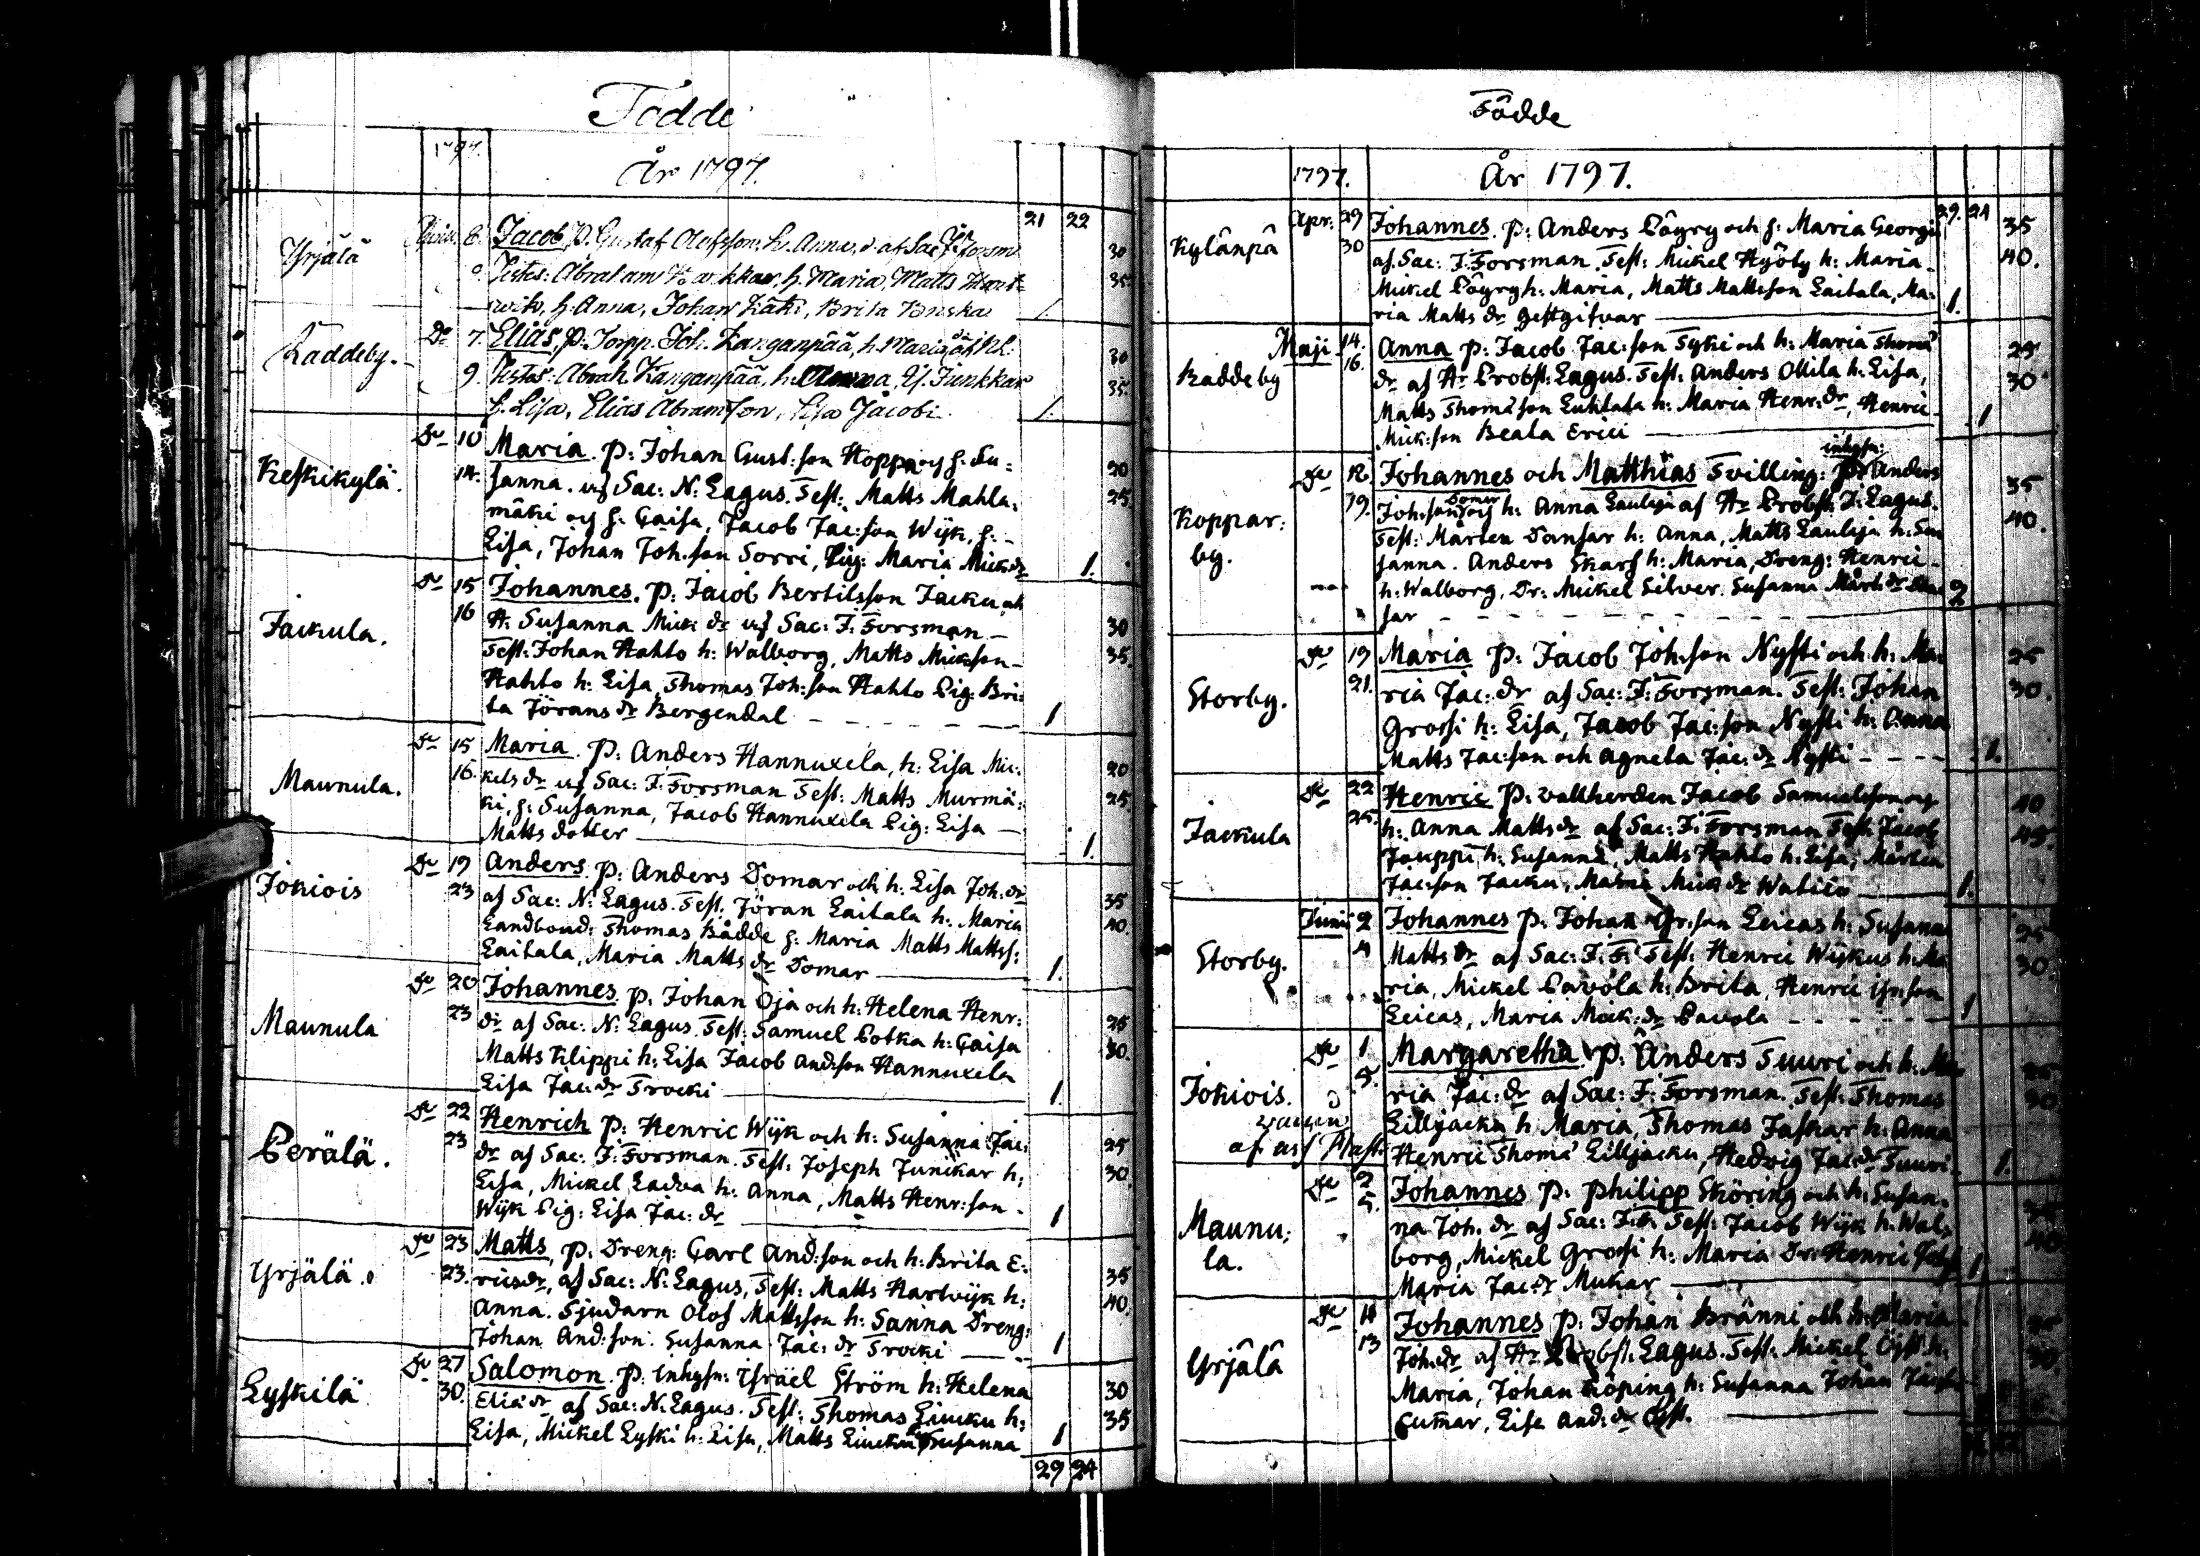 Födde
1797.
År 1797.
21 22
Yrjälä 8. Jacob. P. Gustaf Olofsson. h. Anna, af Sac. Forsm
Testes: Abraham h. Maria, Matts
h. Anna, Johan Brita 1
30
35
Raddeby. Do 7. Elias, P. Torpp. Joh. Kanganpää, h. Maria
9. Testes: Abrah. Kanganpää, h. Anna, Junkkar
h. Lisa, Elias Abramsson, Lisa Jacobi 1.
30
35
Keskikylä. Do 10 Maria. P: Johan Gust:son Hoppa och h: Su:
14. sanna. af Sac: N: Lagus. Test: Matts Mahla:
mäki och h: Caisa, Jacob Jac:son Wijk, h: -
Lisa, Johan Joh:son Sorri, Pig: Maria Mick:dr 1.
20
25
Jackula. Do 15 Johannes. P: Jacob Bertilsson Jacku och
16 H: Susanna Mick: dr af Sac: F: Forsman -
Test: Johan Hahto h: Walborg, Matts Micksson -
Hahto h: Lisa, Thomas Joh:son Hahto Pig: Bri:
ta Jörans dr Bergendal - - - - 1
30
35.
Maunula. Do 15 Maria. P: Anders Hannuxela, h: Lisa Mic:
16. kels dr af Sac: F: Forsman Test: Matts Murmä:
ki, h: Susanna, Jacob Hannuxela Pig: Lisa -
Matts dotter 1.
20
25
Jokiois Do 19 Anders. P: Anders Domar och h: Lisa Joh:dr
23 af Sac: N: Lagus. Test. Jöran Laitala h: Maria
Landbond: Thomas Bådde h: Maria Matts Mattss:
Laitala, Maria Matts dr Domar 1.
35
40.
Maunula Do 20 Johannes. P: Johan Oja och h: Helena Henr:
23 dr af Sac: N: Lagus. Test: Samuel Potka h: Caisa
Matts Filippi h: Lisa Jacob And:son Hannuxela
Lisa Jac: dr Trocki 1.
25
30.
Perälä. Do 22 Henrich P: Henric Wijk och h: Susanna Jac:
23 dr af Sac: F: Forsman. Test: Joseph Junckar h:
Lisa, Mickel Ladva h: Anna, Matts Henr:son -
Wijk Pig: Lisa Jac: dr 1
25
30.
Yrjälä. Do 23 Matts, P. Dreng: Carl And:son och h: Brita E:
23. ricsdr, af Sac: N: Lagus, Test: Matts Hartvijk h:
Anna. Sjudarn Olof Mattsson h: Sanna Dreng:
Johan And:son. Susanna Jac: dr Trocki 1
35
40.
Lyskilä Do 27 Salomon. P. Inhysn: Israel Ström h: Helena
30. Eliædr af Sac: N: Lagus. Test: Thomas Liucku h:
Lisa, Mickel Lyski h: Lisa, Matts Liucku Susanna 1
30
35
29 24
Födde
1797. År 1797.
29. 24
Kylänpä Apr. 29 Johannes. P: Anders Pöyry och h: Maria Georgii
30 af. Sac: F: Forsman. Test: Mickel Hyöty h: Maria -
Mickel Pöyry h: Maria, Matts Mattsson Laitala, Ma:
ria Matts dr Gestgifvar 1.
35
40.
Raddeby Maji 14. Anna P: Jacob Jac:son Tyki och h: Maria Thomæ
16. dr af Hr Probst: Lagus. Test: Anders Ollila h: Lisa,
Matts Thomæson Luhtala h: Maria Henr: dr, Henric -
Mick:son Beata Erici 1
25
30
Koppar:
by. Do 12. Johannes och Matthias Tvilling: P: inhysn: Anders
19. Joh:son Domar och h: Anna Lauleja af Hr Probst: J: Lagus.
Test: Mårten Dansar h: Anna, Matts Lauleja h: Su
sanna. Anders Skarf h: Maria, Dreng: Henric -
h: Walborg, Dr: Mickel Silver. Susanna Mårt: dr Dan
sar 2
35
40.
Storby. Do 19 Maria P: Jacob Joh:son Nysti och h: Ma:
21. ria Jac: dr af Sac: F: Forsman. Test: Johan
Grossi h: Lisa, Jacob Jac:son Nysti h: Anna
Matts Jac:son och Agneta Jac: dr Nysti - - - - 1.
25
30.
Jackula Do 22 Henric P: vallherden Jacob Samuelsson och
25. h: Anna Matts dr af Sac: F: Forsman Test: Jacob
Jauppi h: Susanna, Matts Hahto h: Lisa, Mårten
Jac:son Jacku, Maria Mick dr 1.
40
45.
Storby. Junii 2 Johannes P: Johan Gr:son Leicas h: Susanna
4 Matts dr af Sac: F: F: Test: Henric Wijkus h: Ma
ria, Mickel Pavola h: Brita, Henric son
Leicas, Maria Mick: dr Pavola 1
25
30.
Jokiois. Do 1. Margaretha P: Anders Tuuri och h: Ma
5. ria Jac: dr af Sac: F: Forsman. Test: Thomas
Lilljacku h: Maria, Thomas Jaskar h: Anna
Henric Thomæ Lilljacku, Hedvig Jac: dr Tuuri 1.
Maunu:
la. Do 2 Johannes P: Philipp Sköring och h: Susan:
5. na Joh. dr af Sac: F: F: Test: Jacob Wijk h: Wal:
borg, Mickel Grossi h: Maria Dr: Henric
Maria Jac: dr Mukar 1.
Yrjälä Do 11 Johannes P: Johan Bränni och h: Maria
13 Joh: dr af Hr Probst: Lagus. Test: Mickel Öyst h:
Maria, Johan Köping h: Susanna Johan
Cumar, Lisa And: dr Öyst.